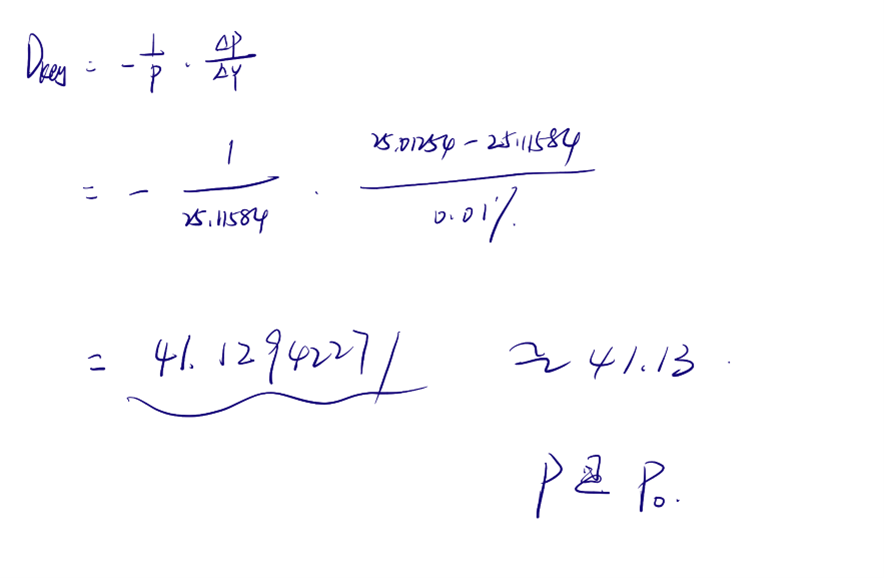 Dkey = - 1/P · ΔP/ΔY
= - 1/25.11584 · (25.01254 - 25.11584)/0.01%
= 41.12942271 ≈ 41.13
P是 P₀.